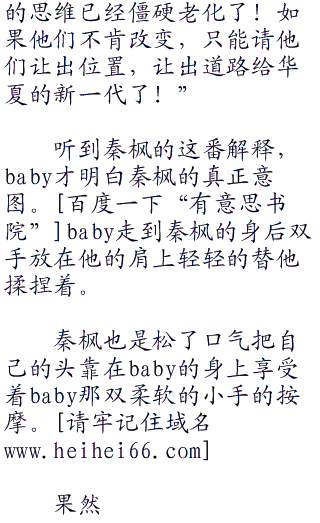 的思维已经僵硬老化了！如
果他们不肯改变，只能请他
们让出位置，让出道路给华
夏的新一代了！”
听到秦枫的这番解释，
baby才明白秦枫的真正意
图。[百度一下“有意思书
院”]baby走到秦枫的身后双
手放在他的肩上轻轻的替他
揉捏着。
秦枫也是松了口气把自
己的头靠在baby的身上享受
着baby那双柔软的小手的按
摩。[请牢记住域名
www.heihei66.com]
果然